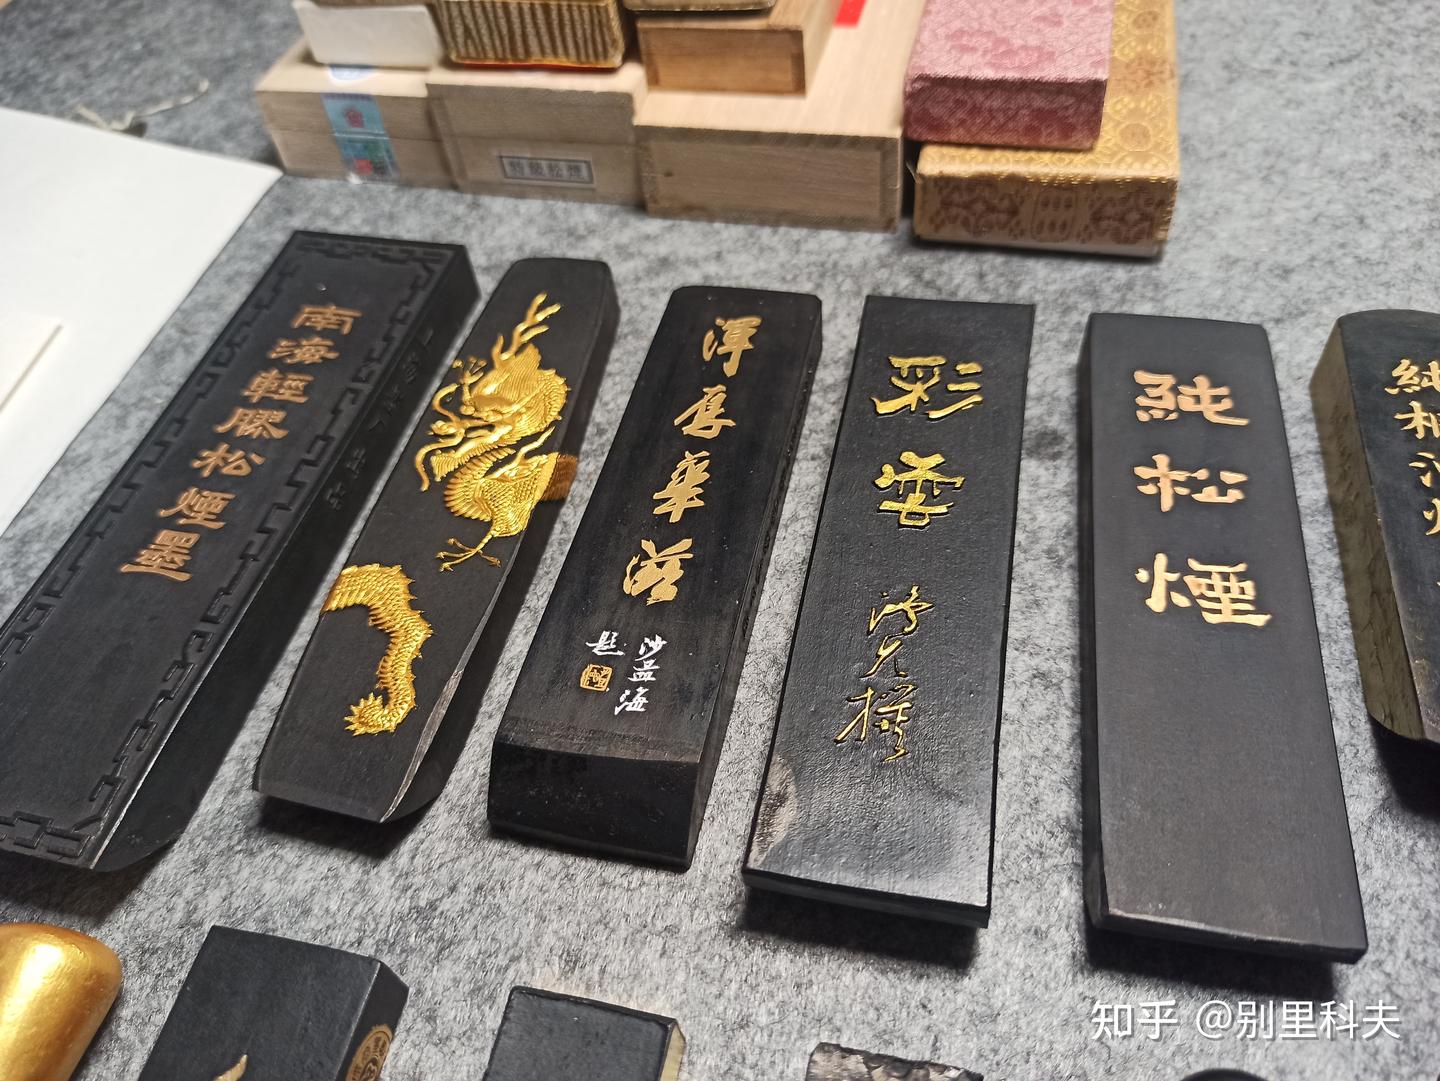 特級松煙
南海輕膠松煙墨
渾厚華滋
沙孟海
題
彩雲
純松煙
純桐油煙
知乎 @别里科夫